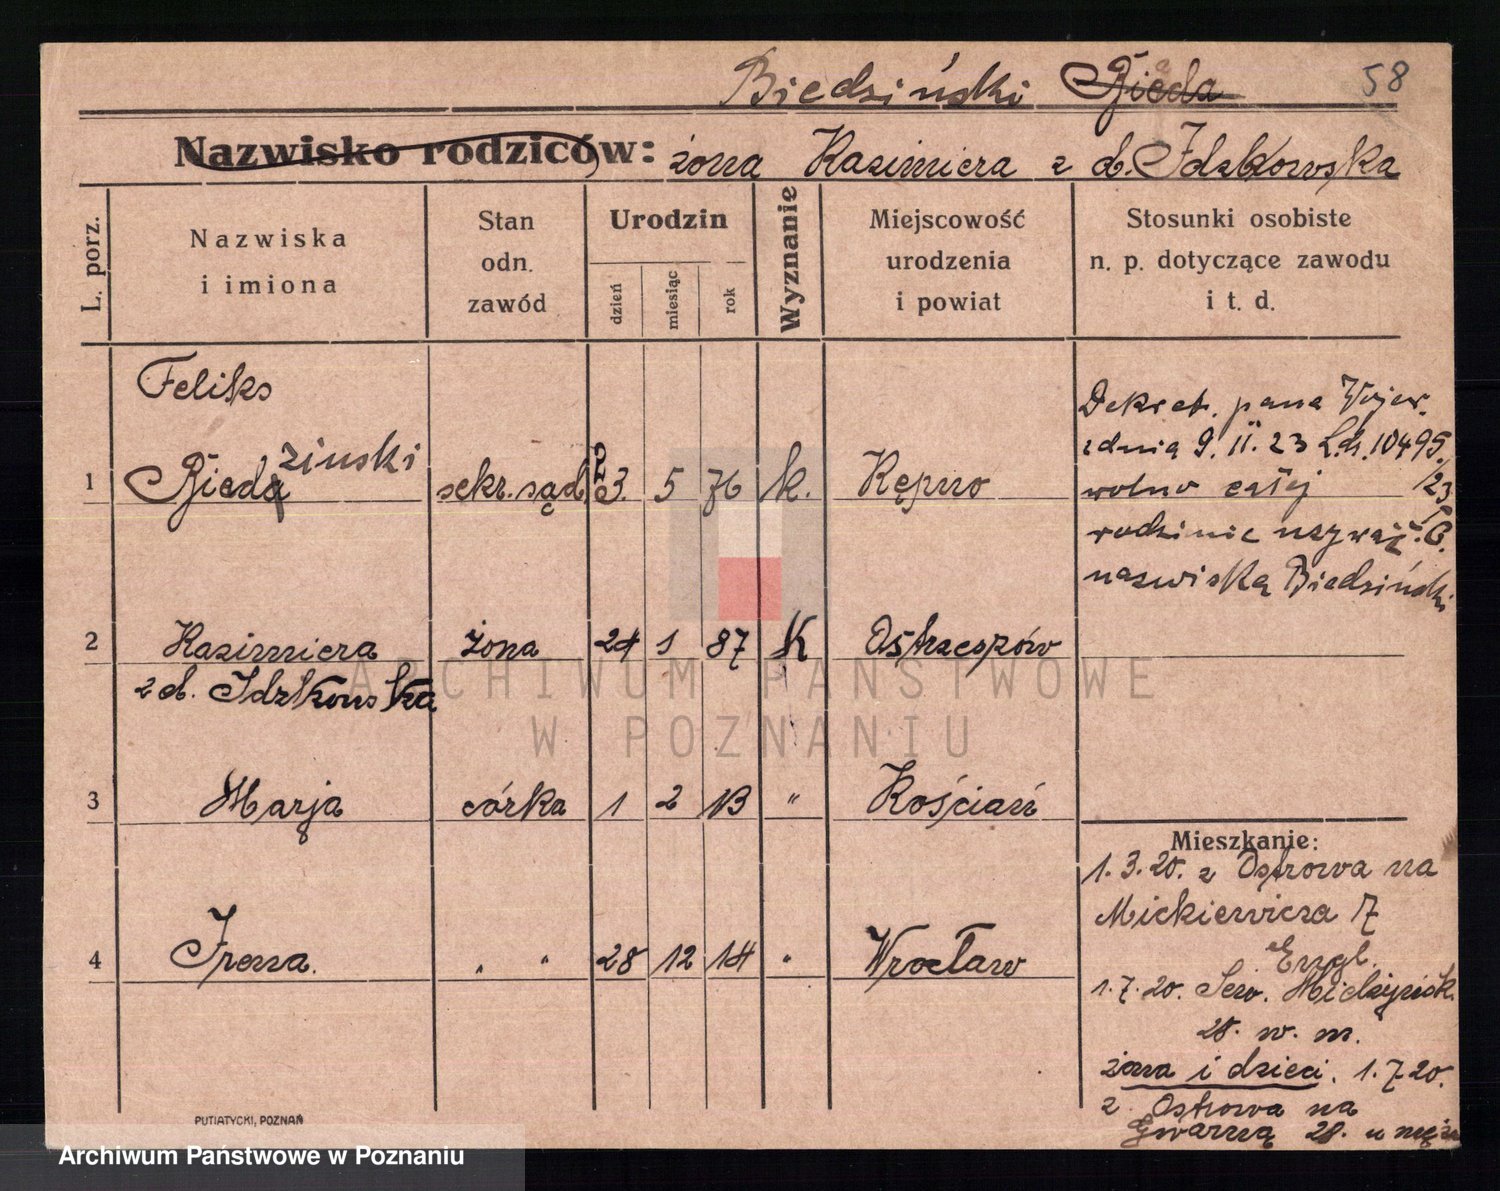 Biedziński Bieda 58
Nazwisko rodziców: żona Kazimiera z d. Idzkowska
L. porz.
Nazwiska
i imiona
Stan
odn.
zawód
Urodzin
dzień
miesiąc
rok
Wyznanie
Miejscowość
urodzenia
i powiat
Stosunki osobiste
n. p. dotyczące zawodu
i t. d.
Feliks
1 Biedaziński sekr. sąd. 3. 5 76 k. Kępno
Dekret. pana Wojew.
z dnia 9. II. 23 L.dz. 10495
wolno całej /23
rodzinie używać
nazwiska Biedziński
2 Kazimiera żona 24 1 87 K Ostrzeszów
z d. Idzkowska
3 Marja córka 1 2 13 " Kościan
4 Irena. " " 28 12 14 " Wrocław
Mieszkanie:
1.3.20. z Ostrowa na
Mickiewicza 7
Engl.
1.7.20. Sew. Mielżyńsk.
28. w. m.
żona i dzieci. 1.7.20.
z Ostrowa na
Gwarną 28. u męża
PUTIATYCKI, POZNAŃ
ARCHIWUM PAŃSTWOWE
W POZNANIU
Archiwum Państwowe w Poznaniu